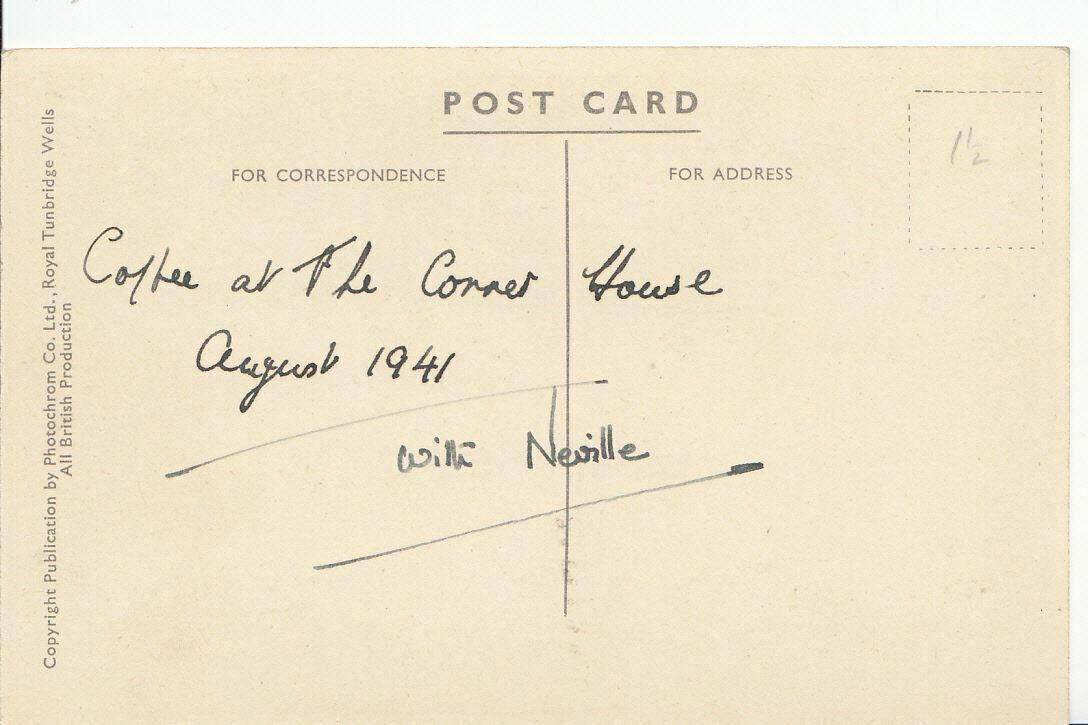 POST CARD
FOR CORRESPONDENCE
FOR ADDRESS
1½
Coffee at The Corner House
August 1941
with Neville
Copyright Publication by Photochrom Co. Ltd., Royal Tunbridge Wells
All British Production